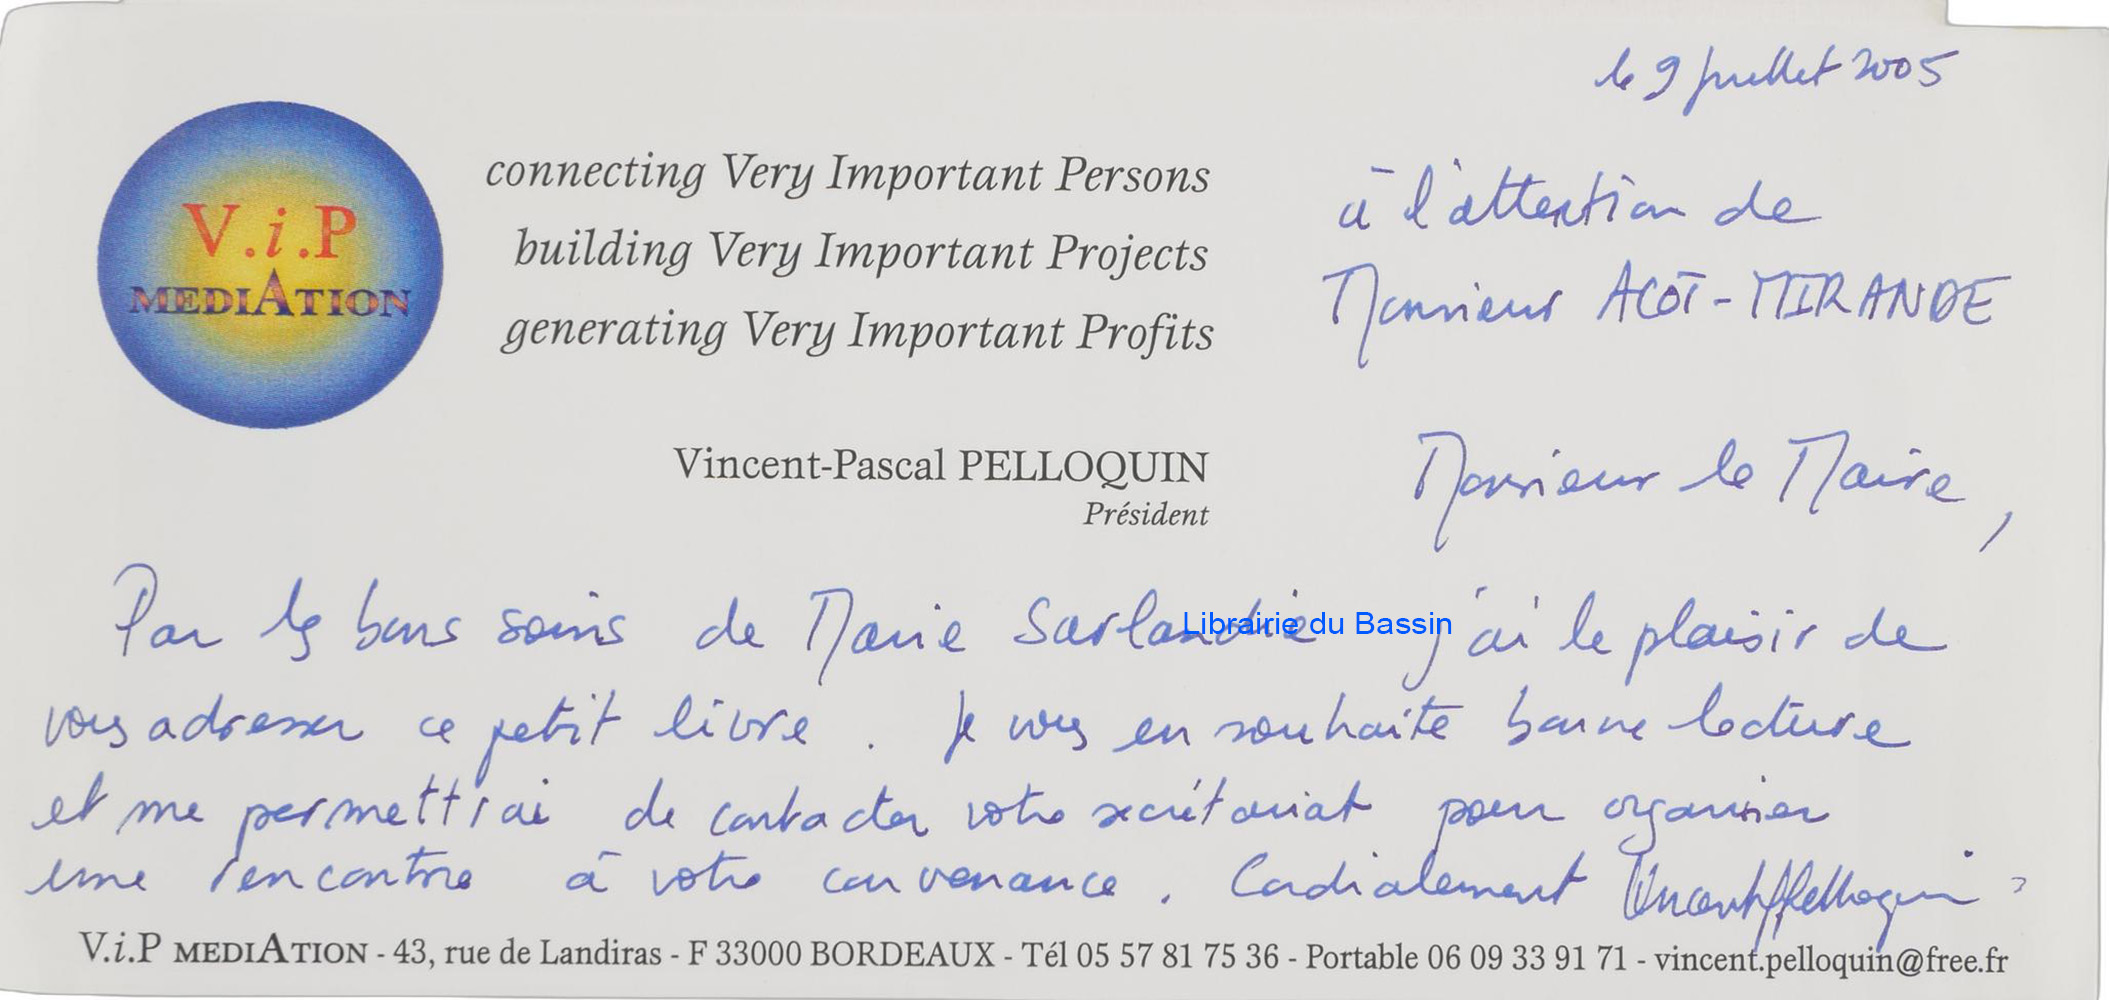 le 9 juillet 2005
V.i.P
MEDIATION
connecting Very Important Persons
building Very Important Projects
generating Very Important Profits
à l'attention de
Monsieur ACOT-MIRANDE
Vincent-Pascal PELLOQUIN
Président
Monsieur le Maire,
Par les bons soins de Marie Sarlandie j'ai le plaisir de
Librairie du Bassin
vous adresser ce petit livre. Je vous en souhaite bonne lecture
et me permettrai de contacter votre secrétariat pour organiser
une rencontre à votre convenance. Cordialement VincentPPelloquin
V.i.P MEDIATION - 43, rue de Landiras - F 33000 BORDEAUX - Tél 05 57 81 75 36 - Portable 06 09 33 91 71 - vincent.pelloquin@free.fr